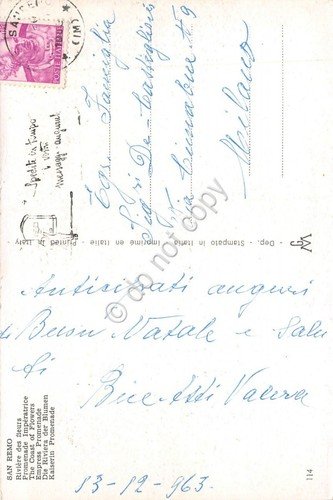 SAN REMO
Rivière des fleurs
Promenade Impératrice
The Coast of Flowers
Empress Promenade
Die Riviera der Blumen
Kaiserin Promenade
114
Anticipati auguri
di Buon Natale e Salu
di
13-12-963.
Dep. - Stampato in Italia - Imprimé en Italie - Printed in Italy
Egr. Famiglia
Sig.ri De
Via Cimabue N. 9
Milano
Spedite in tempo
i vostri
messaggi augurali
(IM)
do not copy